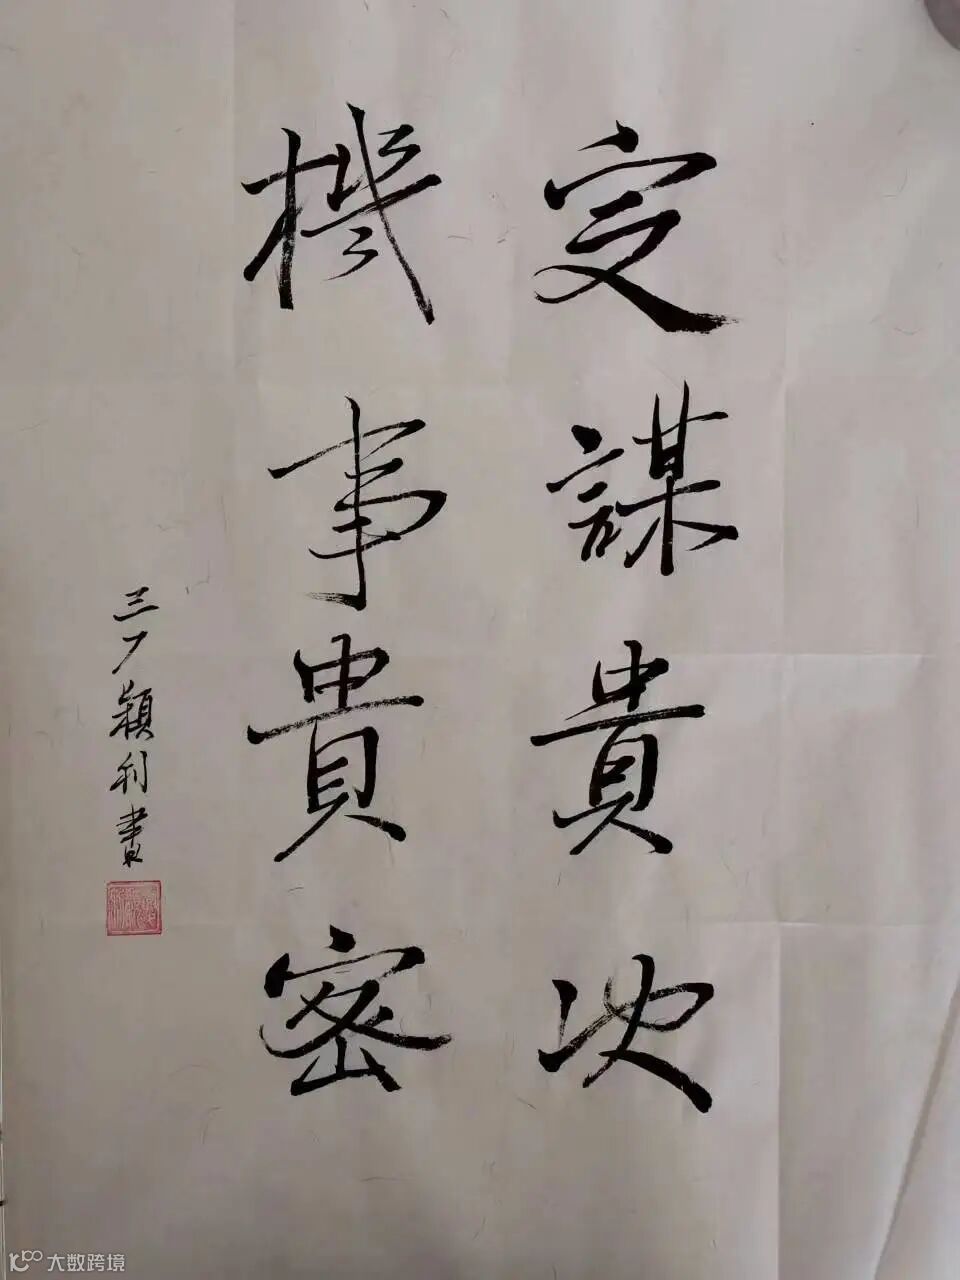 定謀貴決
機事貴密
三丁穎利書
大数跨境